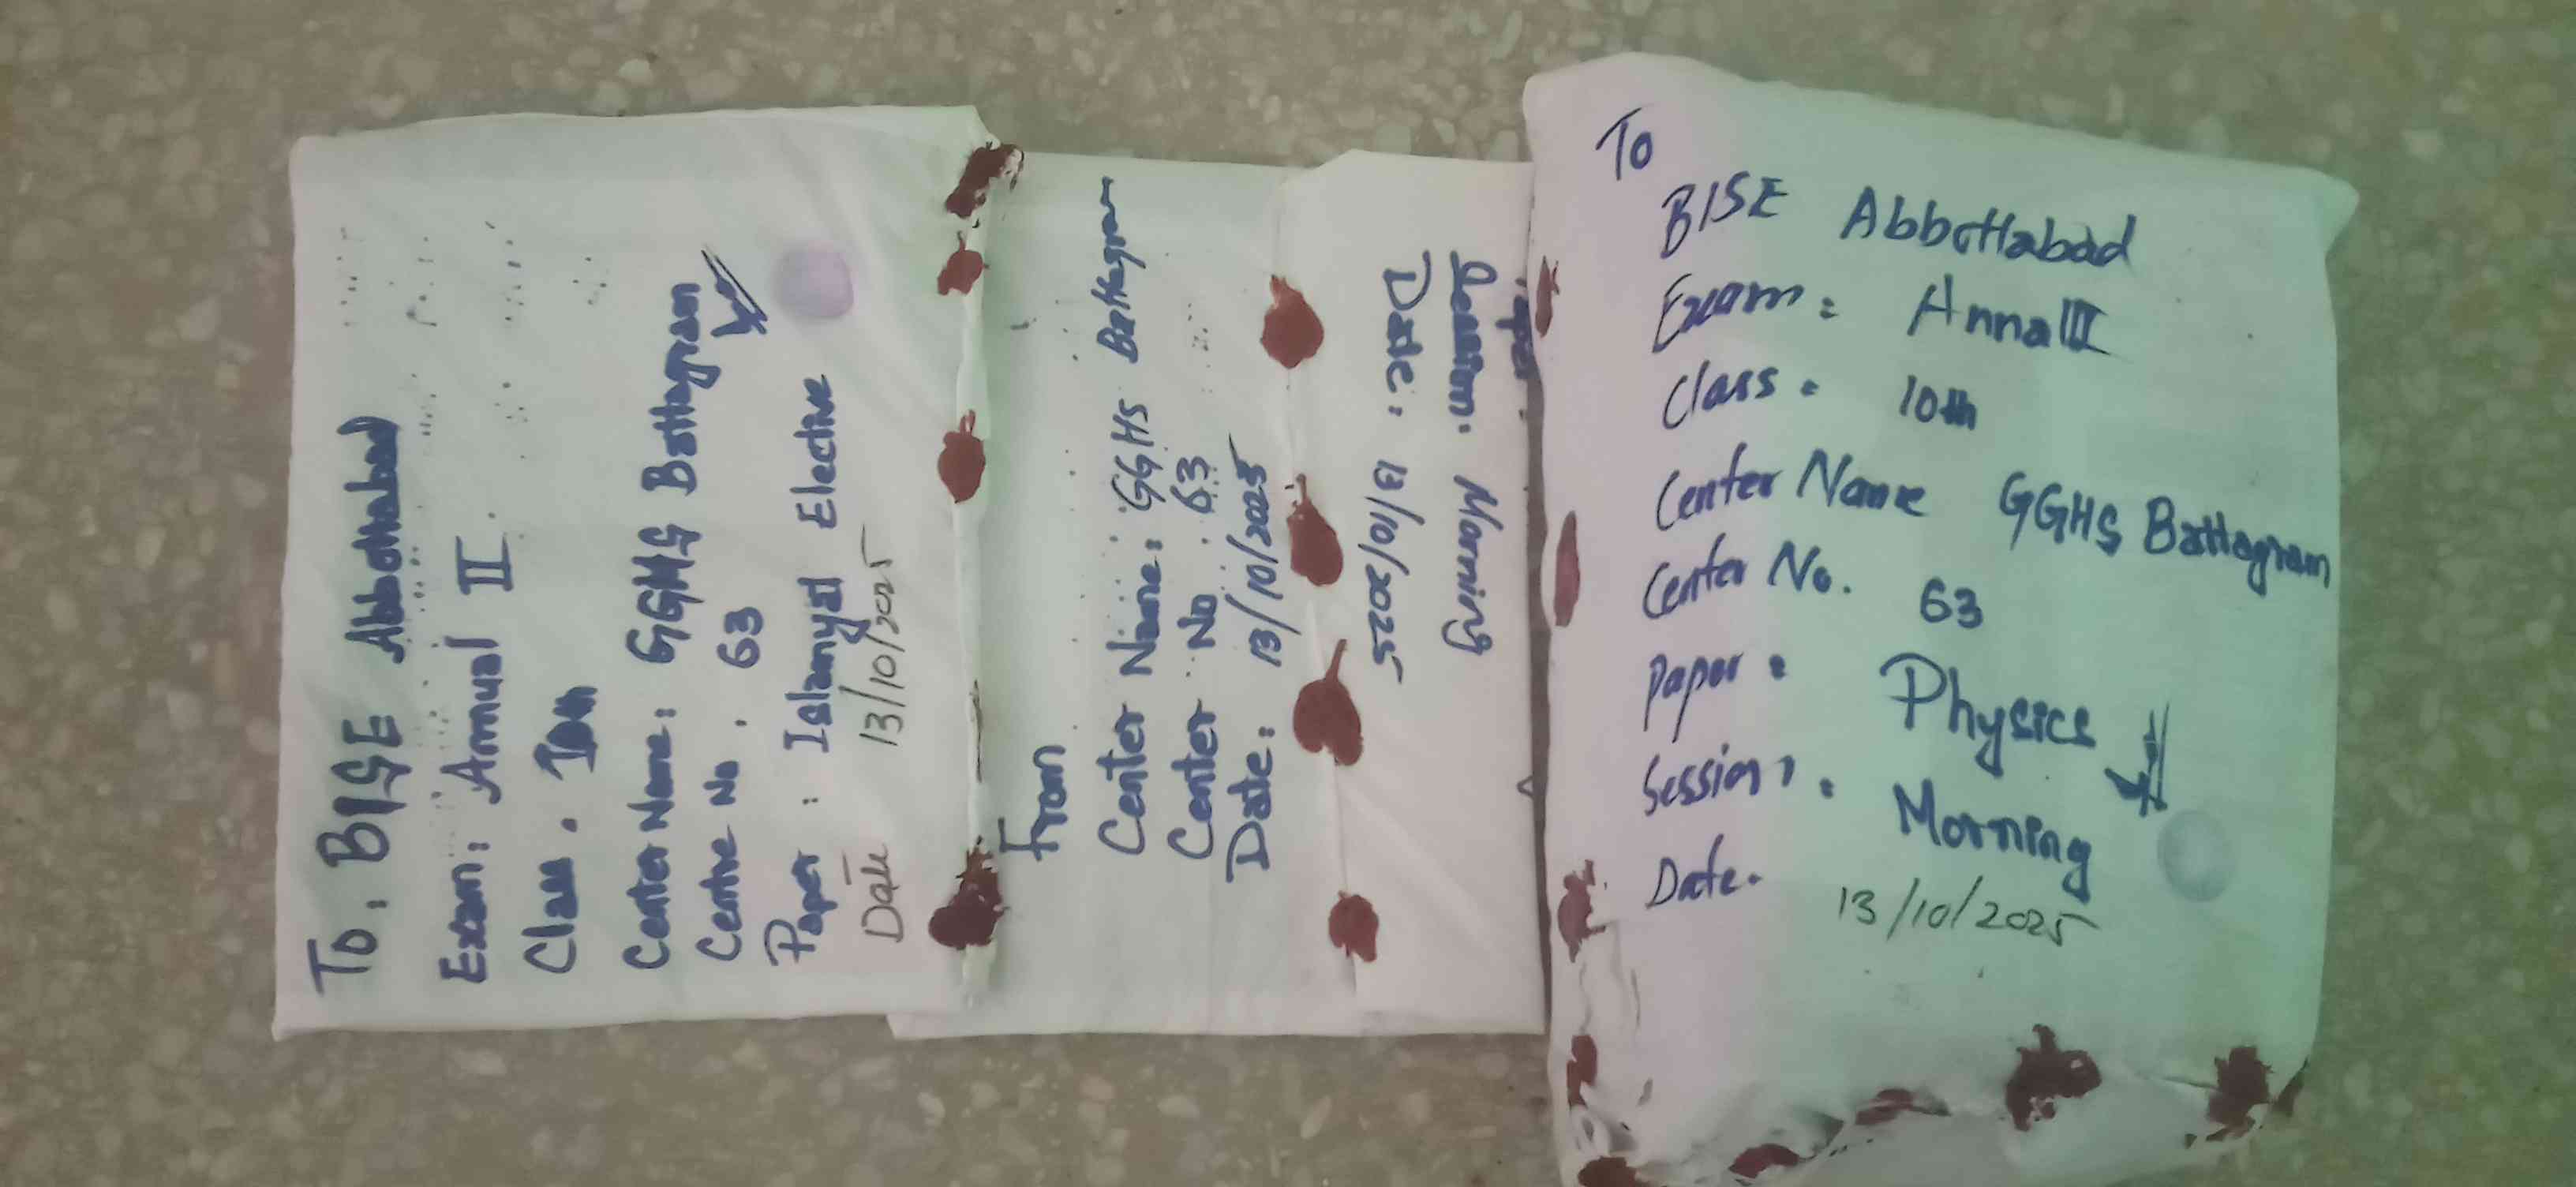 To, BISE Abbottabad
Exam: Annual II
Class. 10th
Center Name: GGHS Battagram
Centre No. 63
Paper: Islamyat Elective
Date 13/10/2025
From
Center Name: GGHS Battagram
Center No 63
Date: 13/10/2025
Session. Morning
Date: 13/10/2025
To
BISE Abbottabad
Exam: Annal II
Class. 10th
Center Name GGHS Battagram
Center No. 63
Paper: Physics
Session: Morning
Date. 13/10/2025